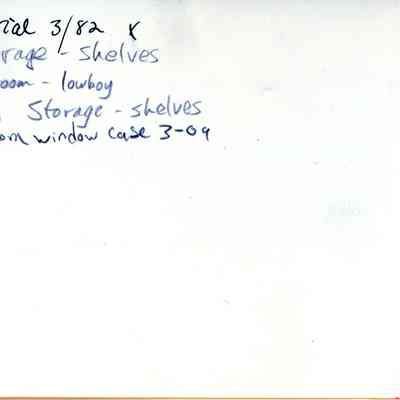 rial 3/82 x
rage - shelves
oom - lowboy
Storage - shelves
om window case 3-09